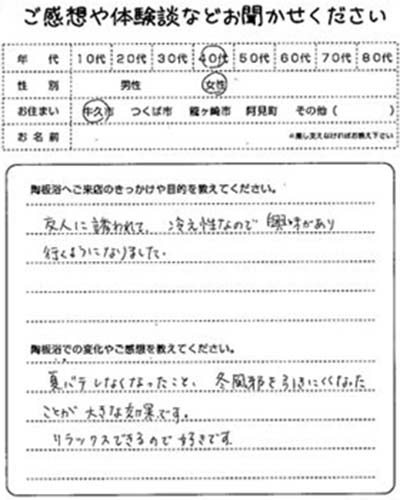 ご感想や体験談などお聞かせください
年代 10代 20代 30代 40代 50代 60代 70代 80代
性別 男性 女性
お住まい 牛久市 つくば市 龍ヶ崎市 阿見町 その他( )
お名前 ※差し支えなければお教え下さい
陶板浴へご来店のきっかけや目的を教えてください。
友人に誘われて、冷え性なので興味があり
行くようになりました。
陶板浴での変化やご感想を教えてください。
夏バテしなくなったこと、冬風邪を引きにくくなった
ことが大きな効果です。
リラックスできるので好きです。